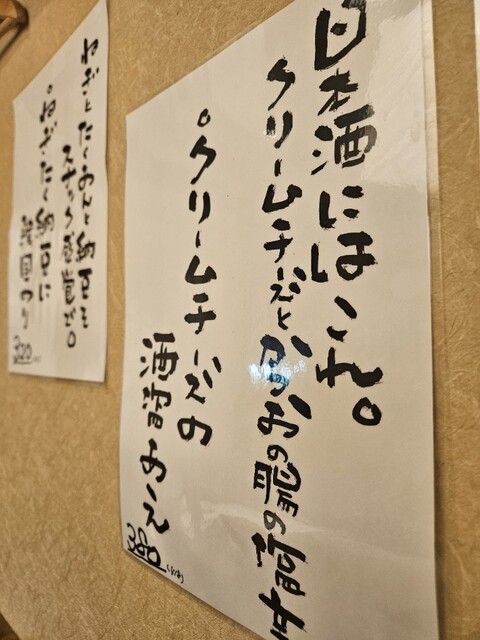 日本酒にはこれ。
クリームチーズとかつおの腸の塩辛
。クリームチーズの
酒盗あえ
380
ねぎとたくあんと納豆を
スナック感覚で。
。ねぎ・たく納豆に
韓国のり
320